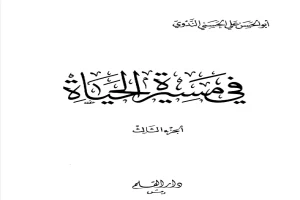 أبو الحسن علي الحسني الندوي
في مسيرة الحياة
الجزء الثالث
دار القلم
دمشق